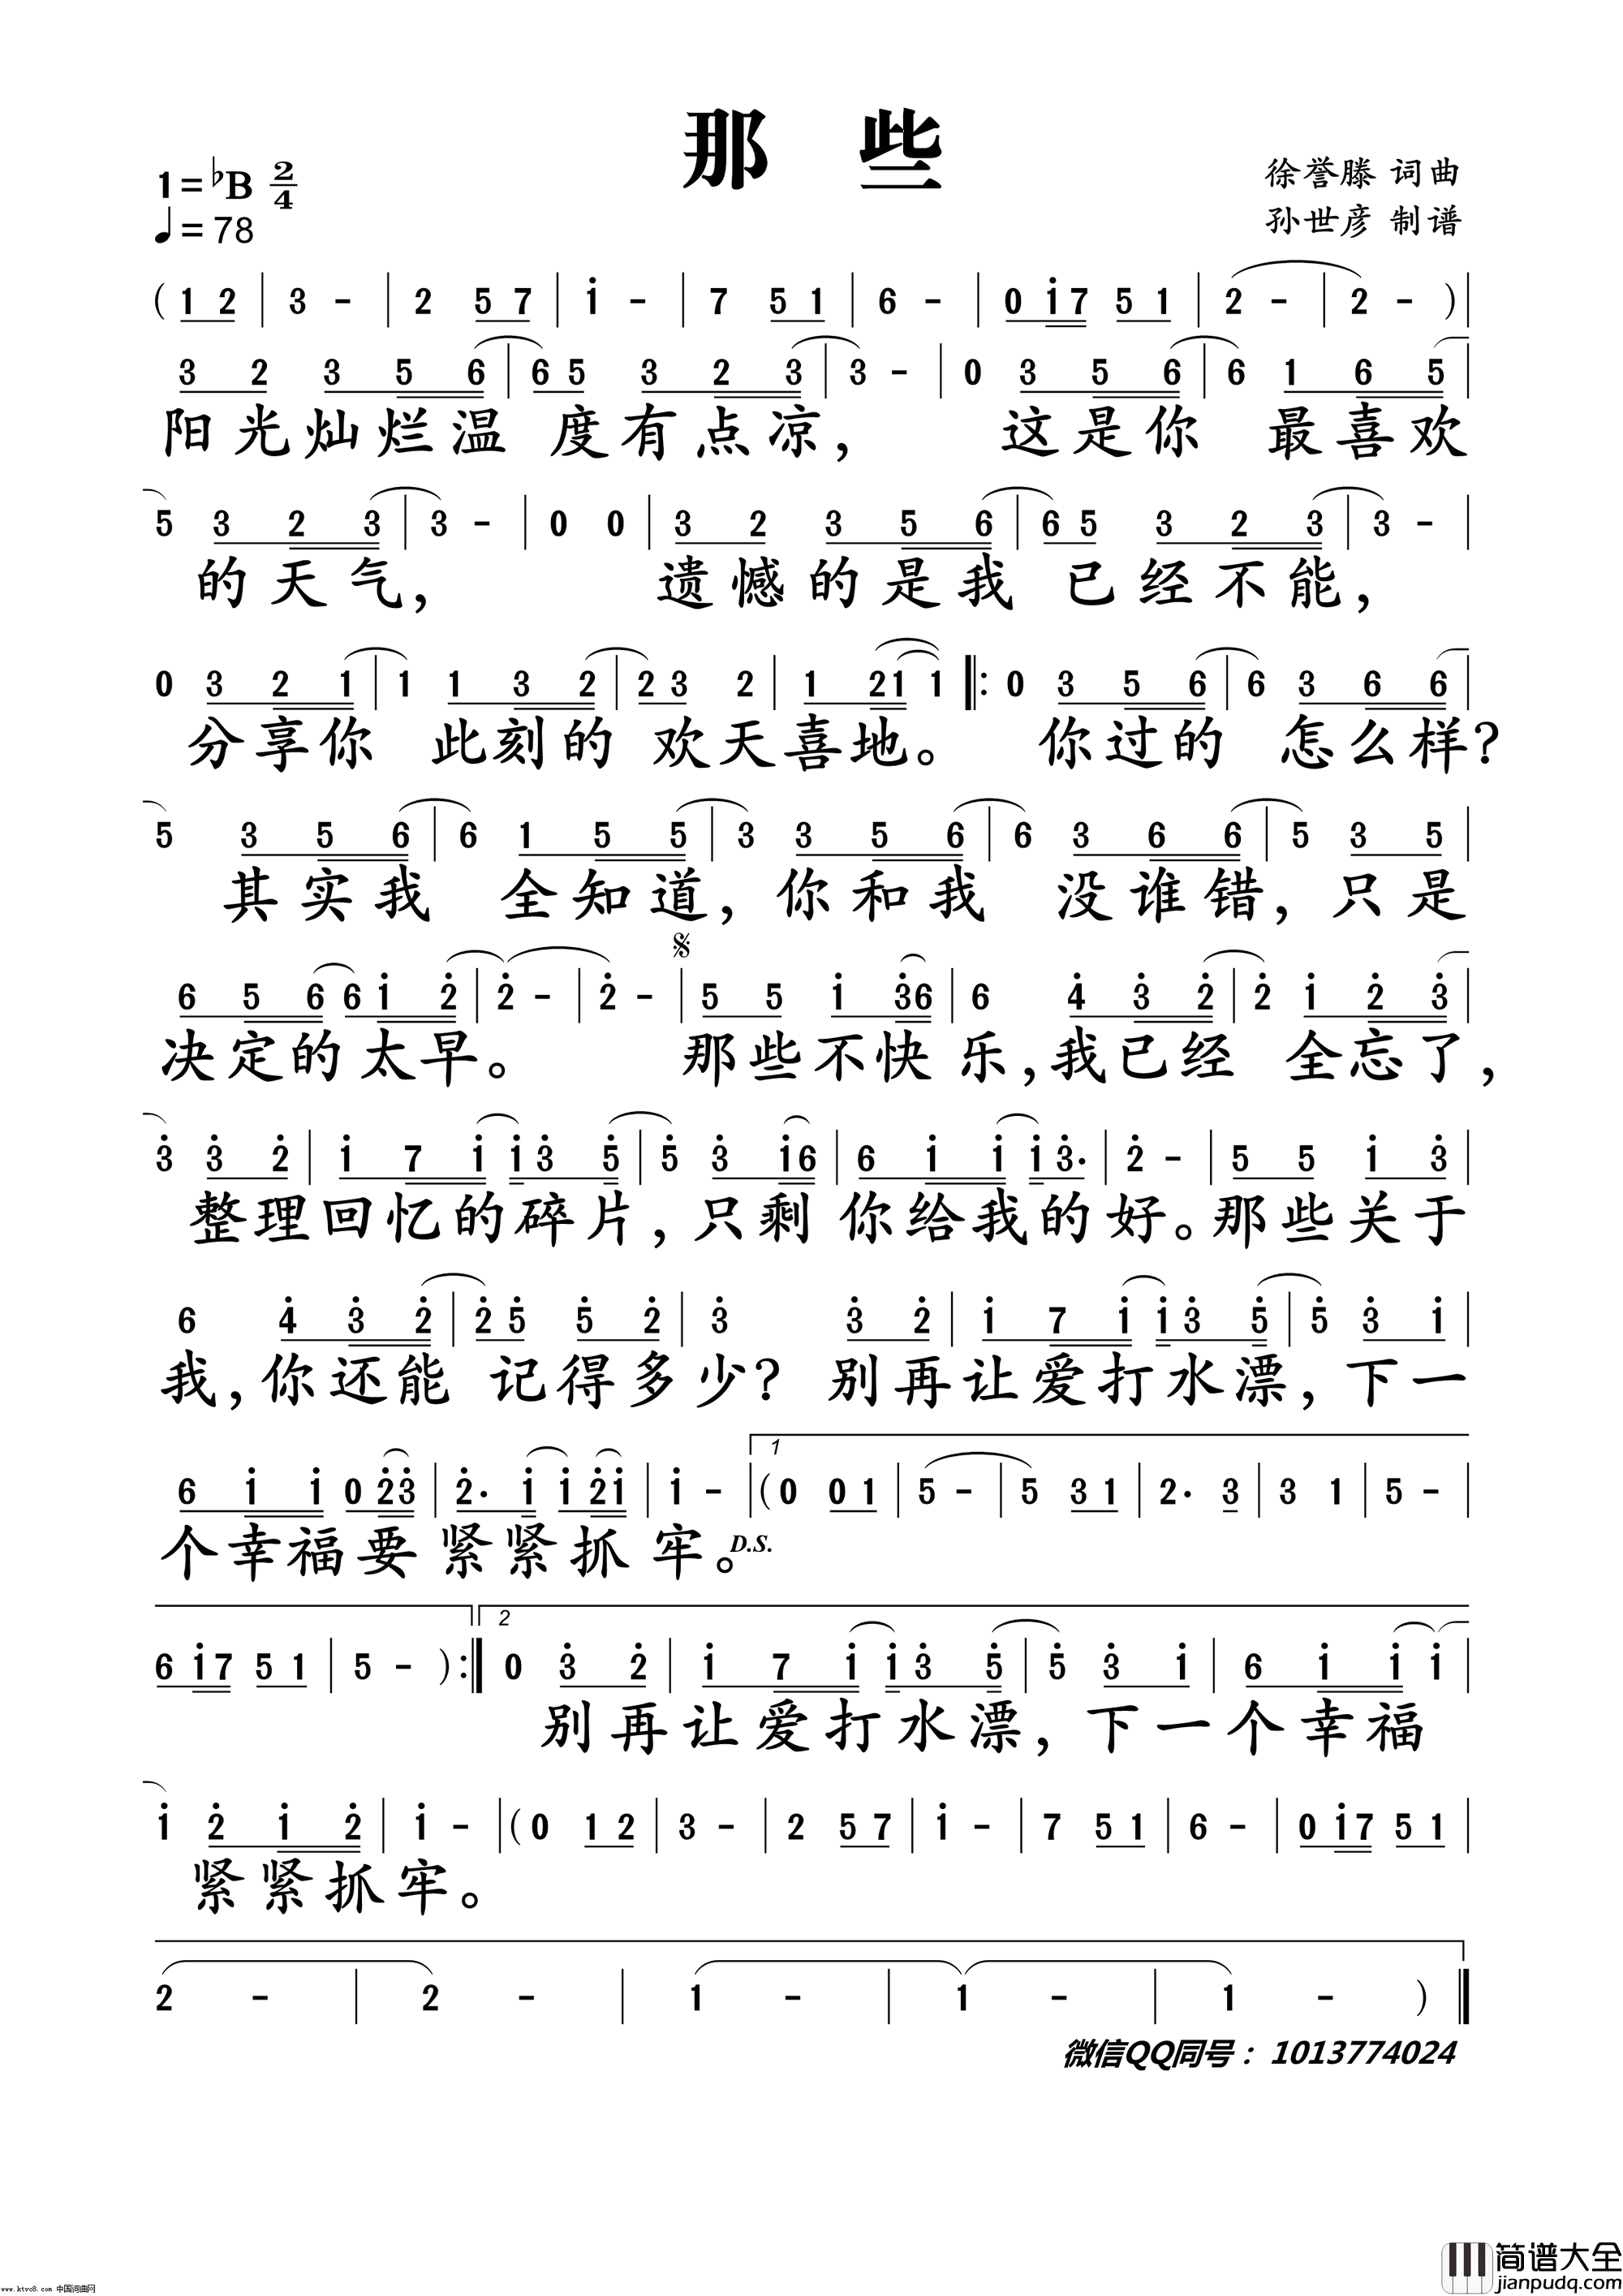 那 些
1=♭B 2/4
♩=78
徐誉滕 词曲
孙世彦 制谱
( 1 2 | 3 - | 2 5 7 | i - | 7 5 1 | 6 - | 0 i 7 5 1 | 2 - | 2 - ) |
3 2 3 5 6 | 6 5 3 2 3 | 3 - | 0 3 5 6 | 6 1 6 5 |
阳光灿烂温 度有点凉， 这是你 最喜欢
5 3 2 3 | 3 - | 0 0 | 3 2 3 5 6 | 6 5 3 2 3 | 3 - |
的天气， 遗憾的是我 已经不能，
0 3 2 1 | 1 1 3 2 | 2 3 2 | 1 2 1 1 ‖: 0 3 5 6 | 6 3 6 6 |
分享你 此刻的 欢天喜地。 你过的 怎么样?
5 3 5 6 | 6 1 5 5 | 3 3 5 6 | 6 3 6 6 | 5 3 5 |
其实我 全知道， 你和我 没谁错， 只是
6 5 6 6 i 2̇ | 2̇ - | 2̇ - | 5 5 i 3̇ 6 | 6 4̇ 3̇ 2̇ | 2̇ i 2̇ 3̇ |
决定的太早。 那些不快乐，我已经 全忘了，
3̇ 3̇ 2̇ | i 7 i i 3̇ 5̇ | 5̇ 3̇ i 6 | 6 i i i 3̇. | 2̇ - | 5 5 i 3̇ |
整理回忆的碎片，只剩 你给我的好。那些关于
6 4̇ 3̇ 2̇ | 2̇ 5̇ 5̇ 2̇ | 3̇ 3̇ 2̇ | i 7 i i 3̇ 5̇ | 5̇ 3̇ i |
我，你还能 记得多少? 别再让爱打水漂，下一
1
6 i i 0 2̇ 3̇ | 2̇. i i 2̇ i | i - | ( 0 0 1 | 5 - | 5 3 1 | 2. 3 | 3 1 | 5 - |
个幸福要 紧紧抓 牢。 D.S.
2
6 i 7 5 1 | 5 - ) :‖ 0 3̇ 2̇ | i 7 i i 3̇ 5̇ | 5̇ 3̇ i | 6 i i i |
别再让爱打水漂，下一个幸福
i 2̇ i 2̇ | i - | ( 0 1 2 | 3 - | 2 5 7 | i - | 7 5 1 | 6 - | 0 i 7 5 1 |
紧紧抓牢。
2 - | 2 - | 1 - | 1 - | 1 - ) ‖
微信QQ同号：1013774024
简谱大全
jianpudq.com
www.ktvc8.com 中国词曲网